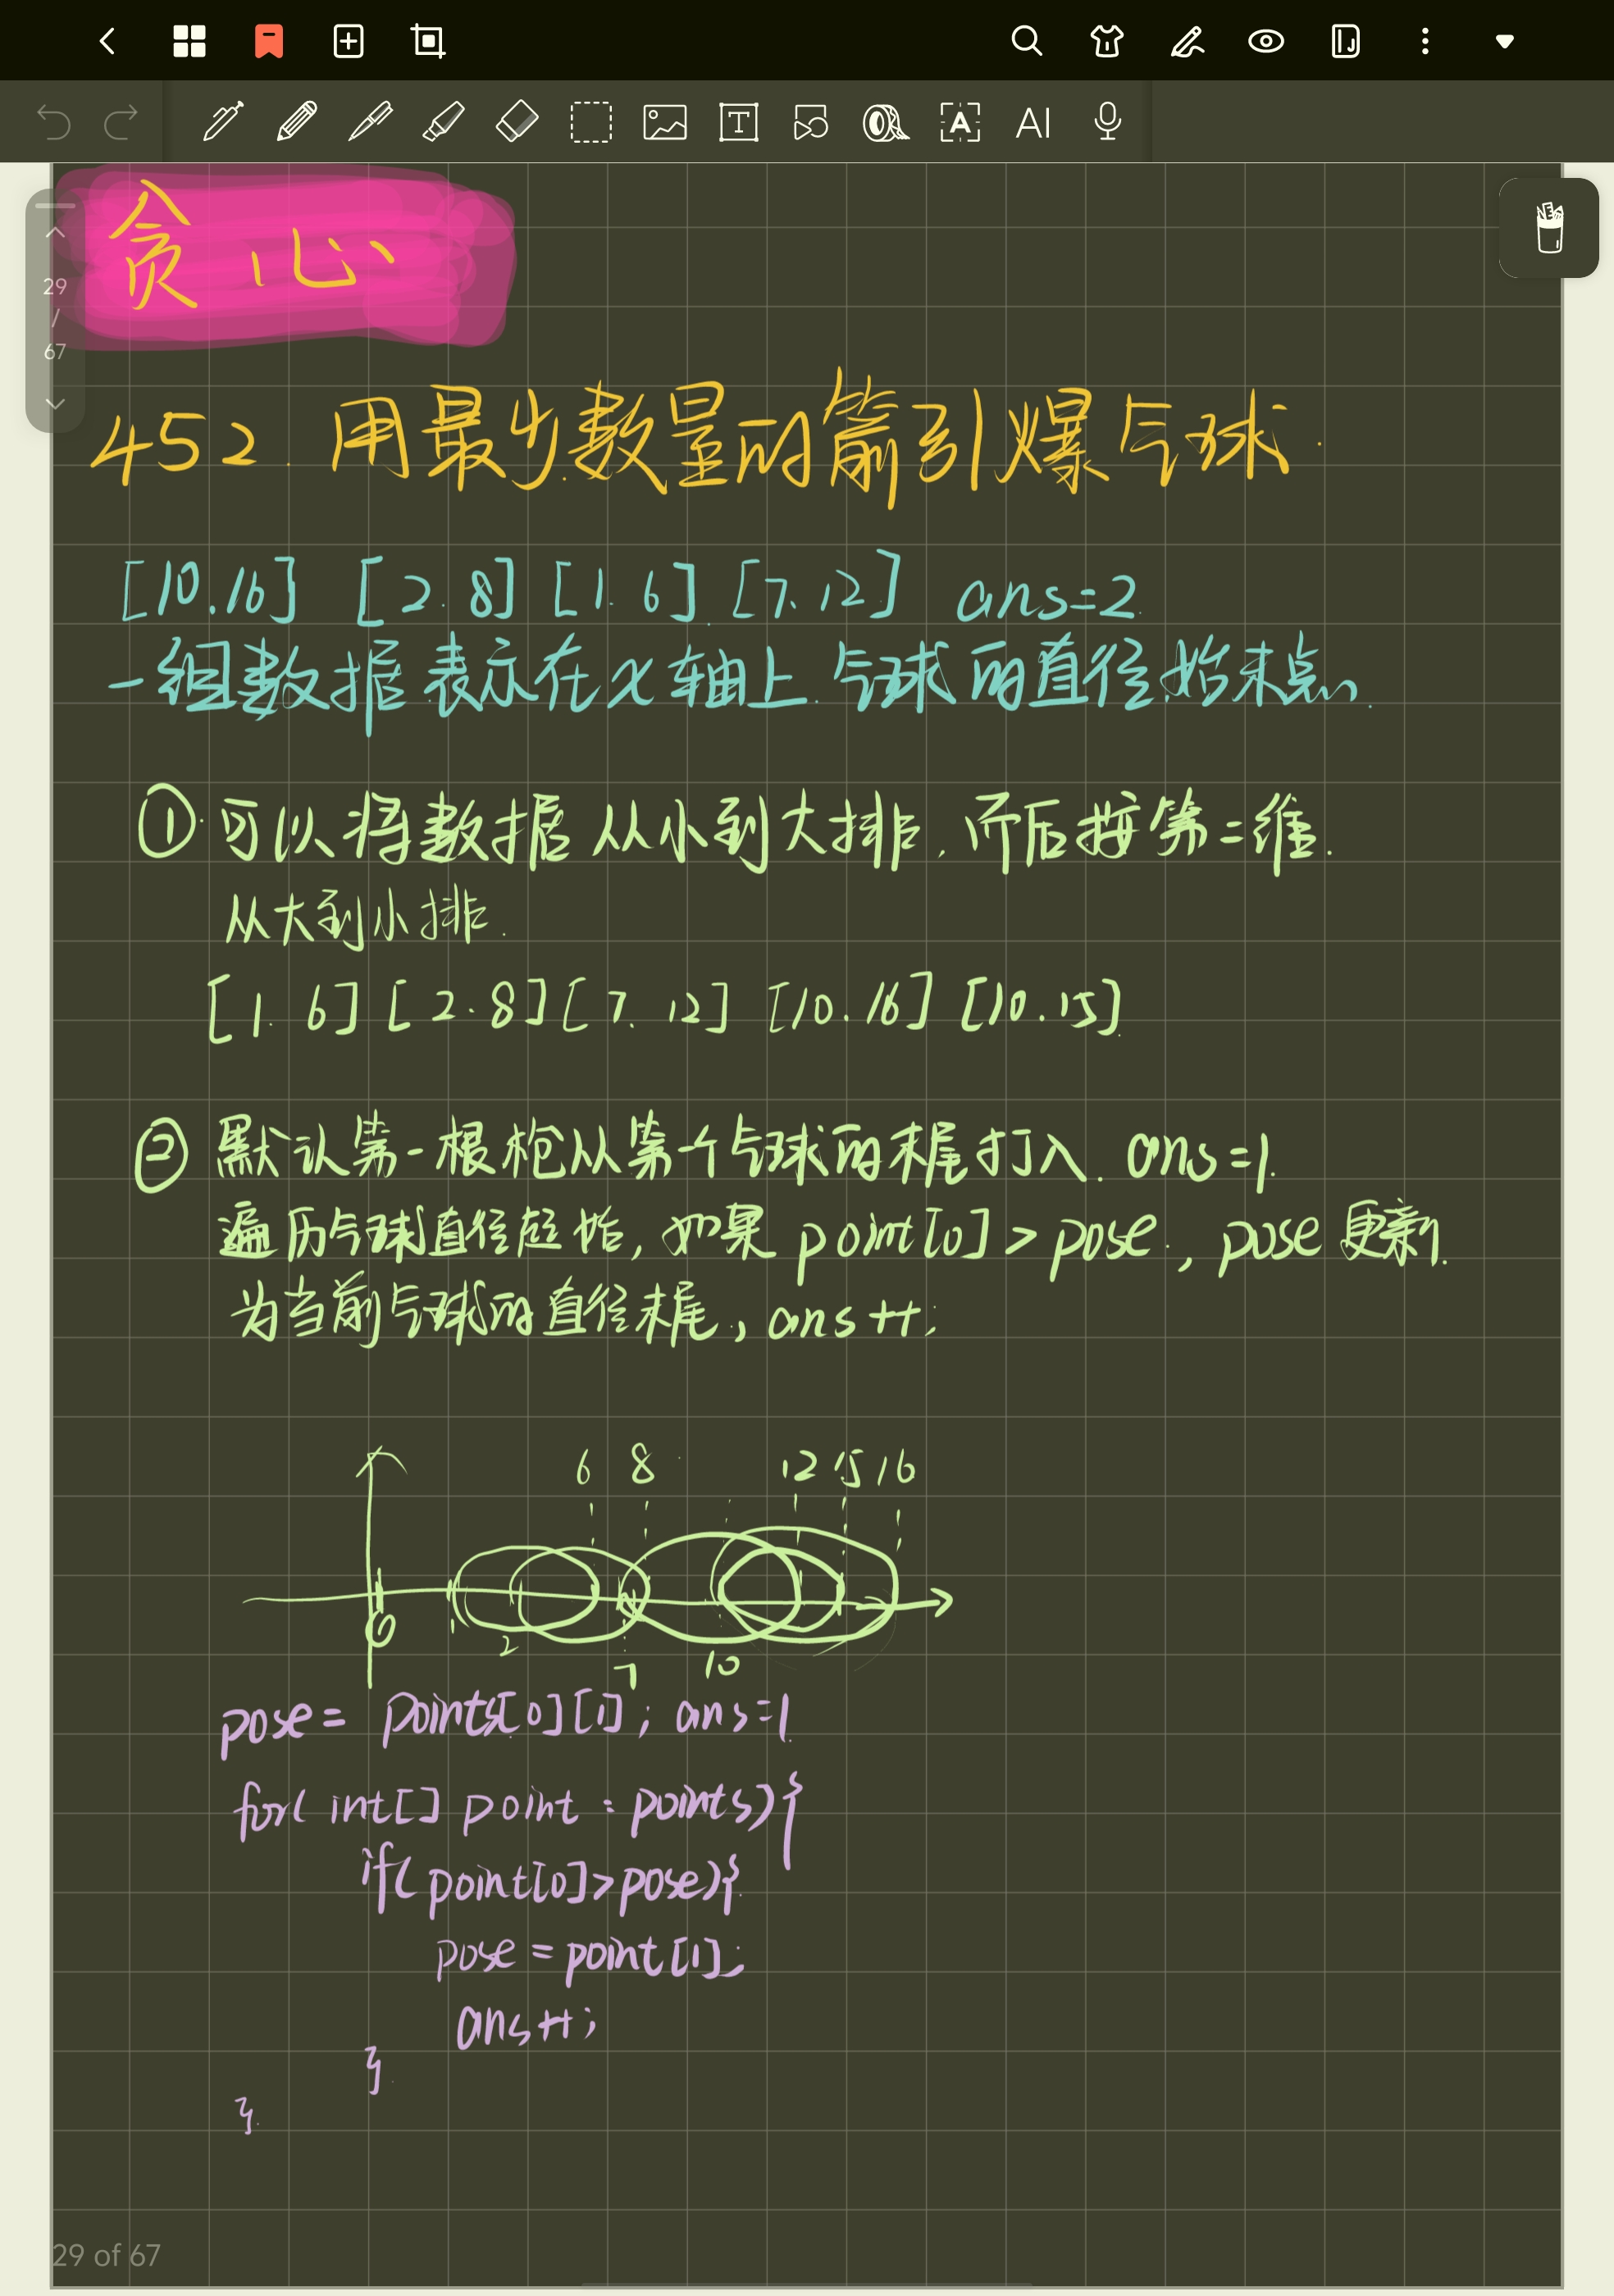 29
/
67
T
A
AI
贪心
452. 用最少数量的箭引爆气球.
[10.16] [2.8] [1.6] [7.12] ans=2
一组数据表示在x轴上气球的直径始末点.
① 可以将数据从小到大排,而后按第二维.
从大到小排.
[1.6] [2.8] [7.12] [10.16] [10.15]
② 默认第一根枪从第一个气球的末尾打入. ans=1.
遍历气球直径起始, 如果 point[0] > pose, pose 更新
为当前气球的直径末尾, ans++;
6 8 12 15 16
0 1 2 7 10
pose = points[0][1]; ans=1
for( int[] point : points){
if( point[0]>pose){
pose = point[1];
ans++;
}
}
29 of 67